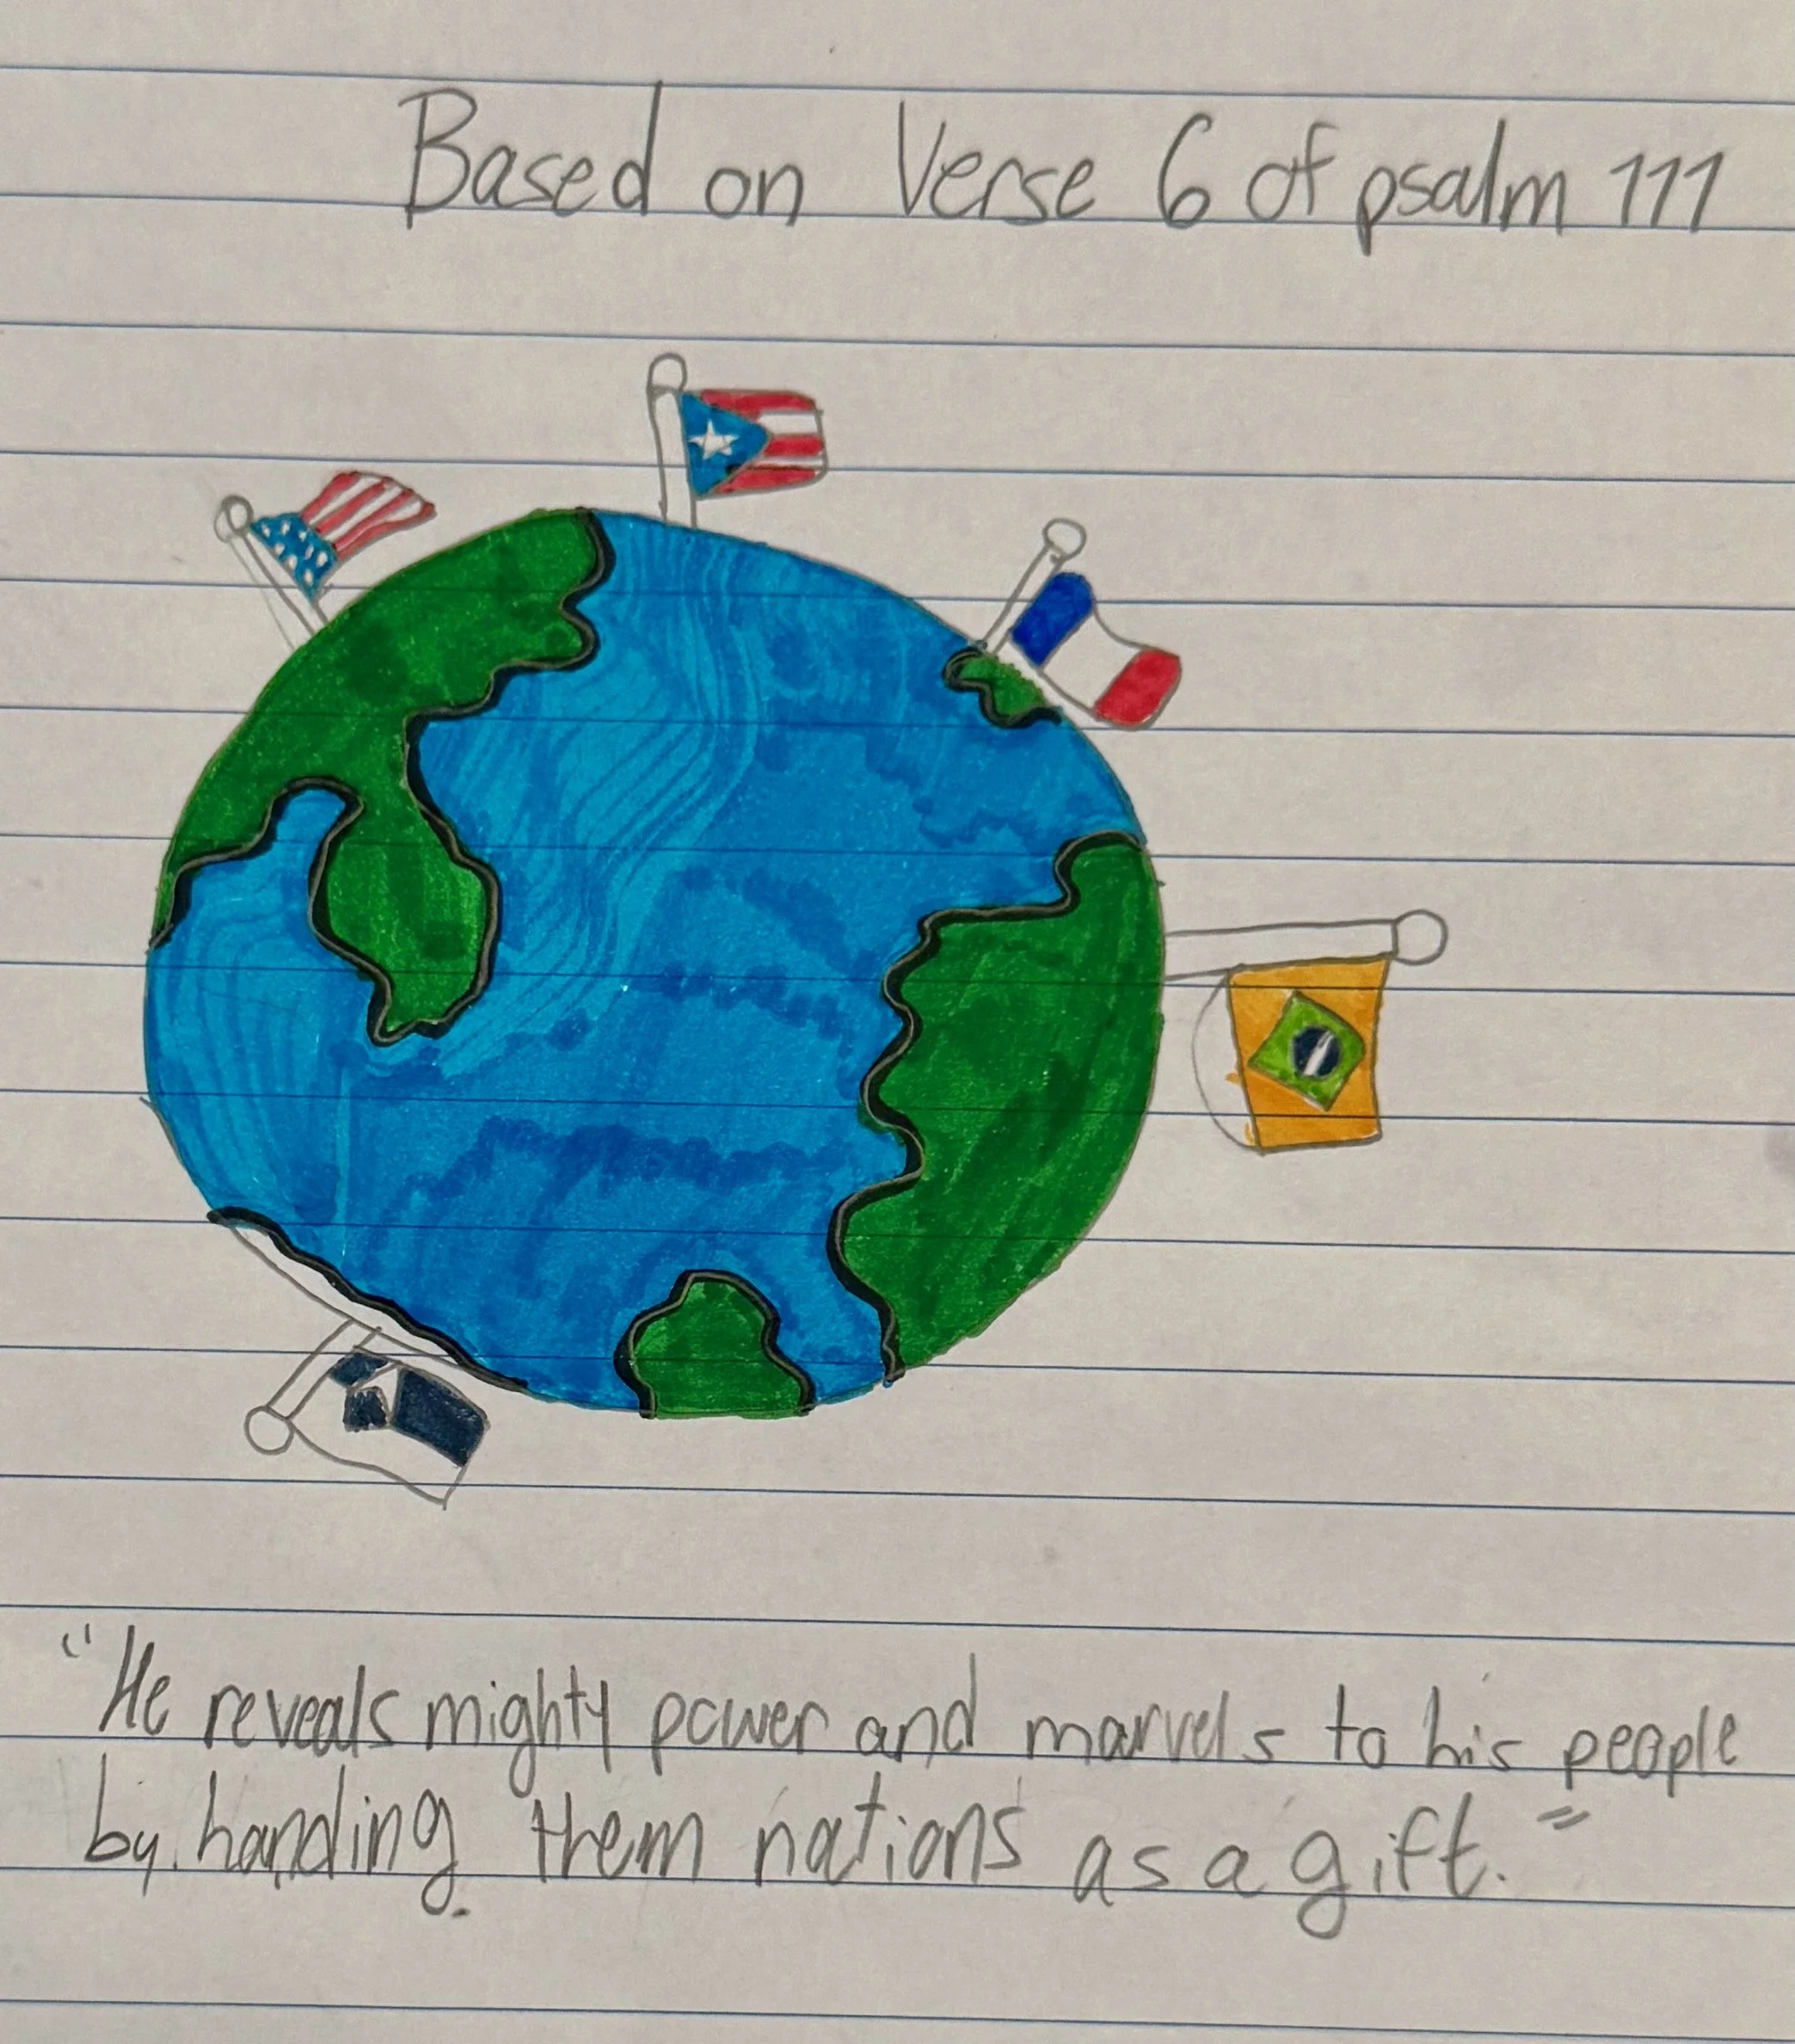 Based on Verse 6 of psalm 111
"He reveals mighty power and marvels to his people
by handing them nations as a gift."